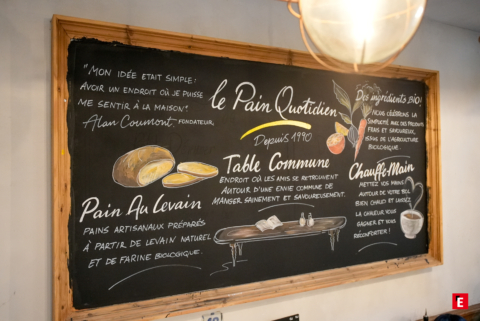 "MON IDÉE ETAIT SIMPLE :
AVOIR UN ENDROIT OÙ JE PUISSE
ME SENTIR À LA MAISON".
Alan Coumont, FONDATEUR.
le Pain Quotidien
Depuis 1990
Des ingrédients BIO!
NOUS CÉLÉBRONS LA
SIMPLICITÉ AVEC DES PRODUITS
FRAIS ET SAVOUREUX,
ISSUS DE L'AGRICULTURE
BIOLOGIQUE.
Pain Au Levain
PAINS ARTISANAUX PRÉPARÉS
À PARTIR DE LEVAIN NATUREL
ET DE FARINE BIOLOGIQUE.
Table Commune
ENDROIT OÙ LES AMIS SE RETROUVENT
AUTOUR D'UNE ENVIE COMMUNE DE
MANGER SAINEMENT ET SAVOUREUSEMENT.
Chauffe-Main
METTEZ VOS MAINS
AUTOUR DE VOTRE BOL
BIEN CHAUD ET LAISSEZ
LA CHALEUR VOUS
GAGNER ET VOUS
RÉCONFORTER!
E